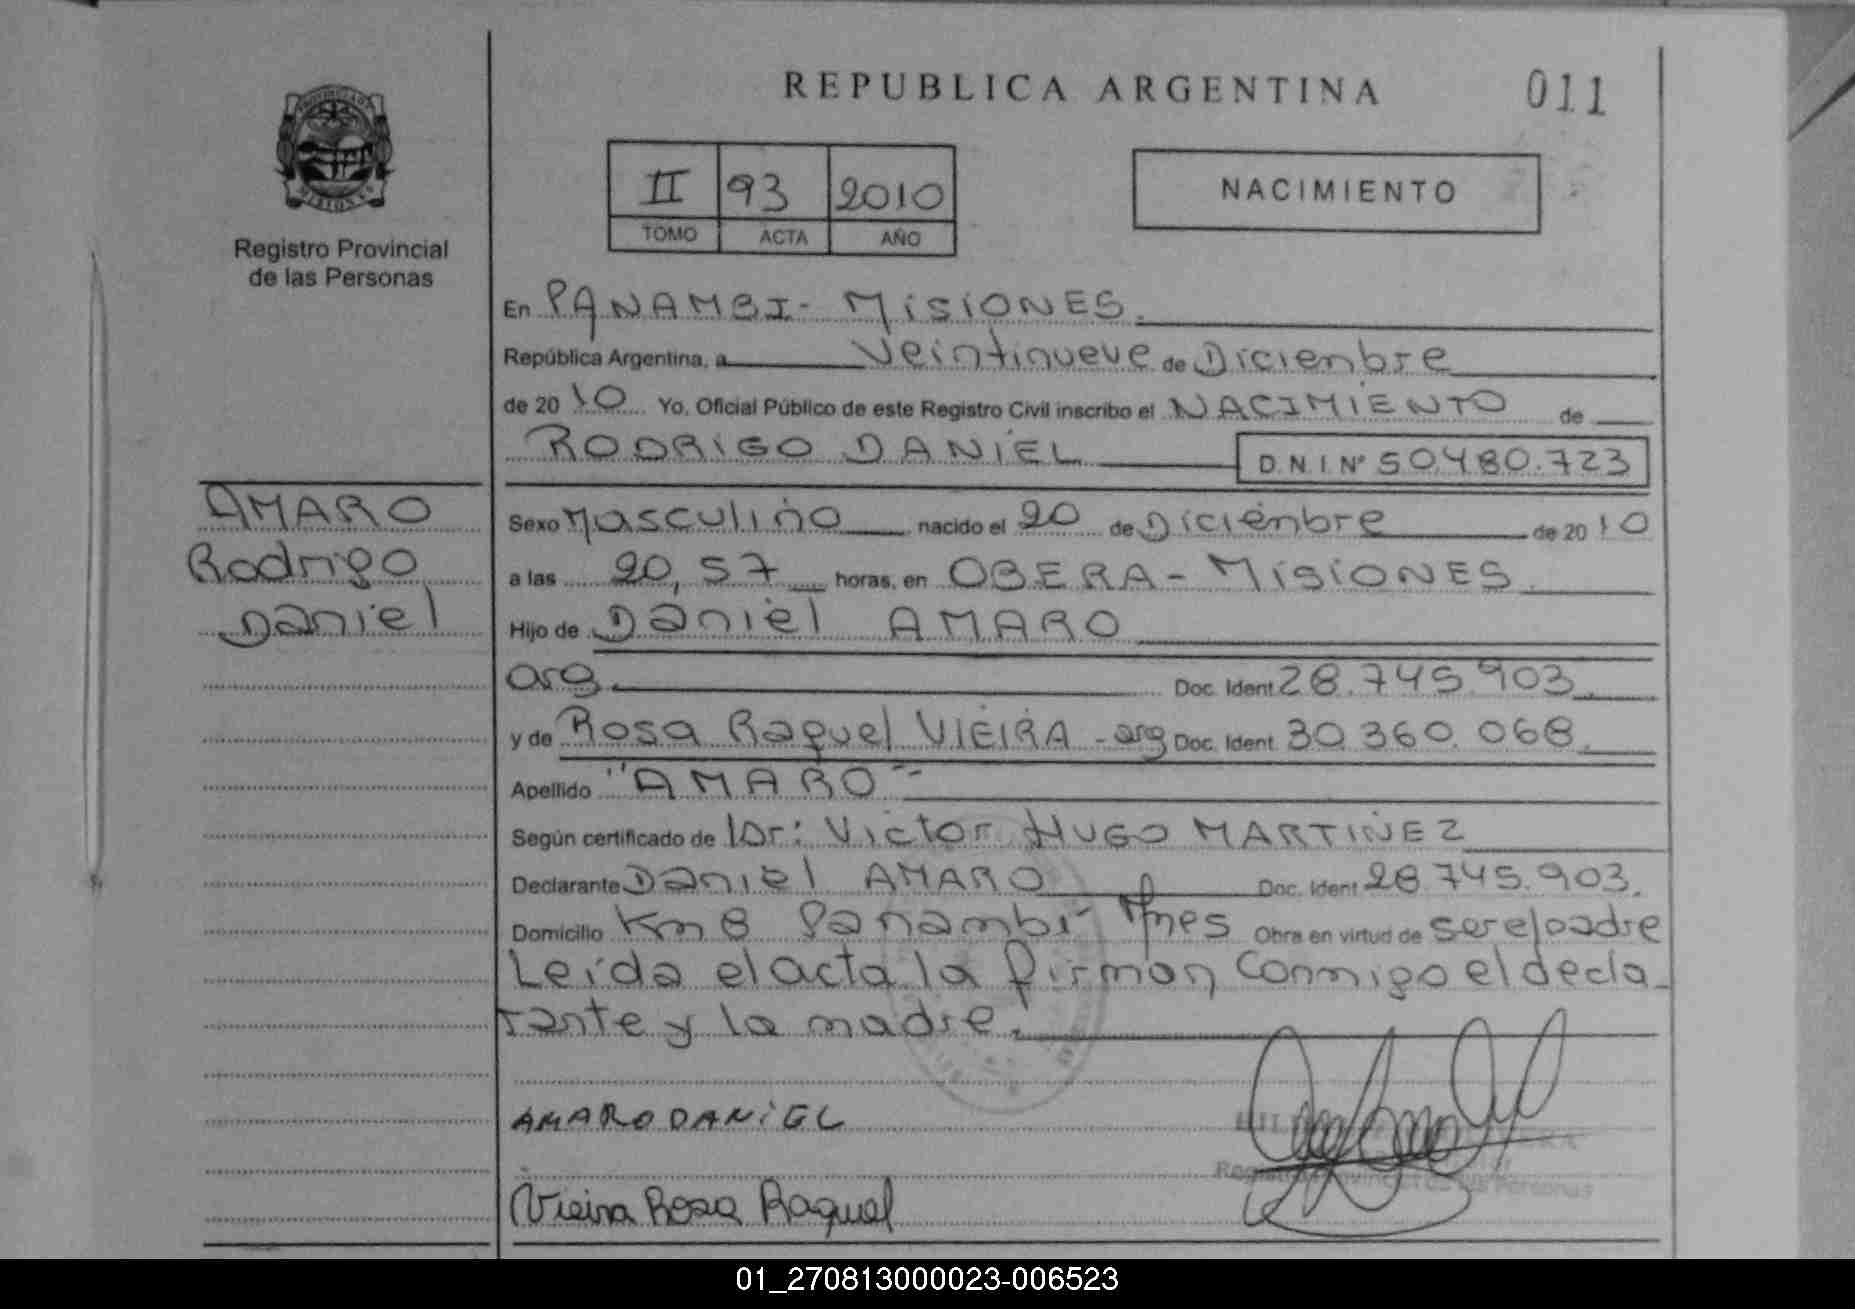 REPUBLICA ARGENTINA
011
II 93 2010
TOMO ACTA AÑO
NACIMIENTO
Registro Provincial
de las Personas
En PANAMBI - MISIONES.
República Argentina, a Veintinueve de Diciembre
de 20 10 Yo, Oficial Público de este Registro Civil inscribo el NACIMIENTO de
RODRIGO DANIEL D.N.I Nº 50.480.723
AMARO
Rodrigo
Daniel
Sexo Masculino nacido el 20 de Diciembre de 20 10
a las 20,57 horas, en OBERA - MISIONES
Hijo de Daniel AMARO
arg. Doc. Ident 28.745.903.
y de Rosa Raquel VIEIRA - arg Doc. Ident. 30.360.068.
Apellido "AMARO"
Según certificado de Dr: Victor HUGO MARTINEZ
Declarante Daniel AMARO Doc. Ident 28.745.903.
Domicilio Km 8 Panambi Mnes Obra en virtud de ser el padre
Leída el acta la firman conmigo el decla-
rante y la madre.
AMARO DANIEL
Vieira Rosa Raquel
01_270813000023-006523